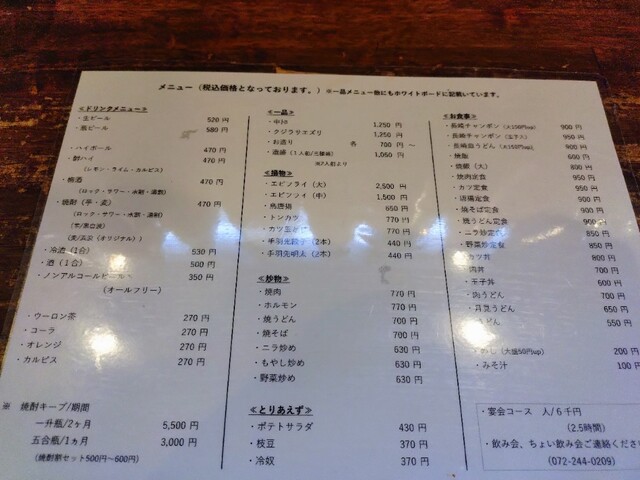 メニュー（税込価格となっております。）※一品メニュー他にもホワイトボードに記載しています。
<ドリンクメニュー>
・生ビール 520 円
・瓶ビール 580 円
・ハイボール 470 円
・酎ハイ 470 円
（レモン・ライム・カルピス）
・梅酒 470 円
（ロック・サワー・水割・湯割）
・焼酎（芋・麦） 470 円
（ロック・サワー・水割・湯割）
・冷酒（1合） 530 円
・酒（1合） 500 円
・ノンアルコールビール 350 円
（オールフリー）
・ウーロン茶 270 円
・コーラ 270 円
・オレンジ 270 円
・カルピス 270 円
※ 焼酎キープ/期間
一升瓶/2ヶ月 5,500 円
五合瓶/1ヵ月 3,000 円
（焼酎割セット500円～600円）
<一品>
1,250 円
・クジラサエズリ 1,250 円
・お造り 各 700 円 ～
1,050 円
※2人前より
<揚物>
・エビフライ（大） 2,500 円
・エビフライ（中） 1,500 円
・鳥唐揚 650 円
・トンカツ 770 円
770 円
・手羽先餃子（2本） 440 円
・手羽先明太（2本） 440 円
<炒物>
・焼肉 770 円
・ホルモン 770 円
・焼うどん 700 円
・焼そば 700 円
・ニラ炒め 630 円
・もやし炒め 630 円
・野菜炒め 630 円
<とりあえず>
・ポテトサラダ 430 円
・枝豆 370 円
・冷奴 370 円
<お食事>
・長崎チャンポン（大100円up） 900 円
・長崎チャンポン 950 円
・長崎皿うどん（大150円up） 900 円
・焼飯 600 円
・焼飯（大） 800 円
・焼肉定食 900 円
・カツ定食 900 円
・唐揚定食 900 円
・焼そば定食 900 円
・焼うどん定食 900 円
・ニラ炒定食 850 円
・野菜炒定食 850 円
カツ丼 800 円
肉丼 700 円
・玉子丼 600 円
・肉うどん 700 円
・月見うどん 650 円
うどん 550 円
めし（大盛50円up） 200 円
・みそ汁 100 円
・宴会コース 人/６千円
（2.5時間）
・飲み会、ちょい飲み会ご連絡くださ
（072-244-0209）